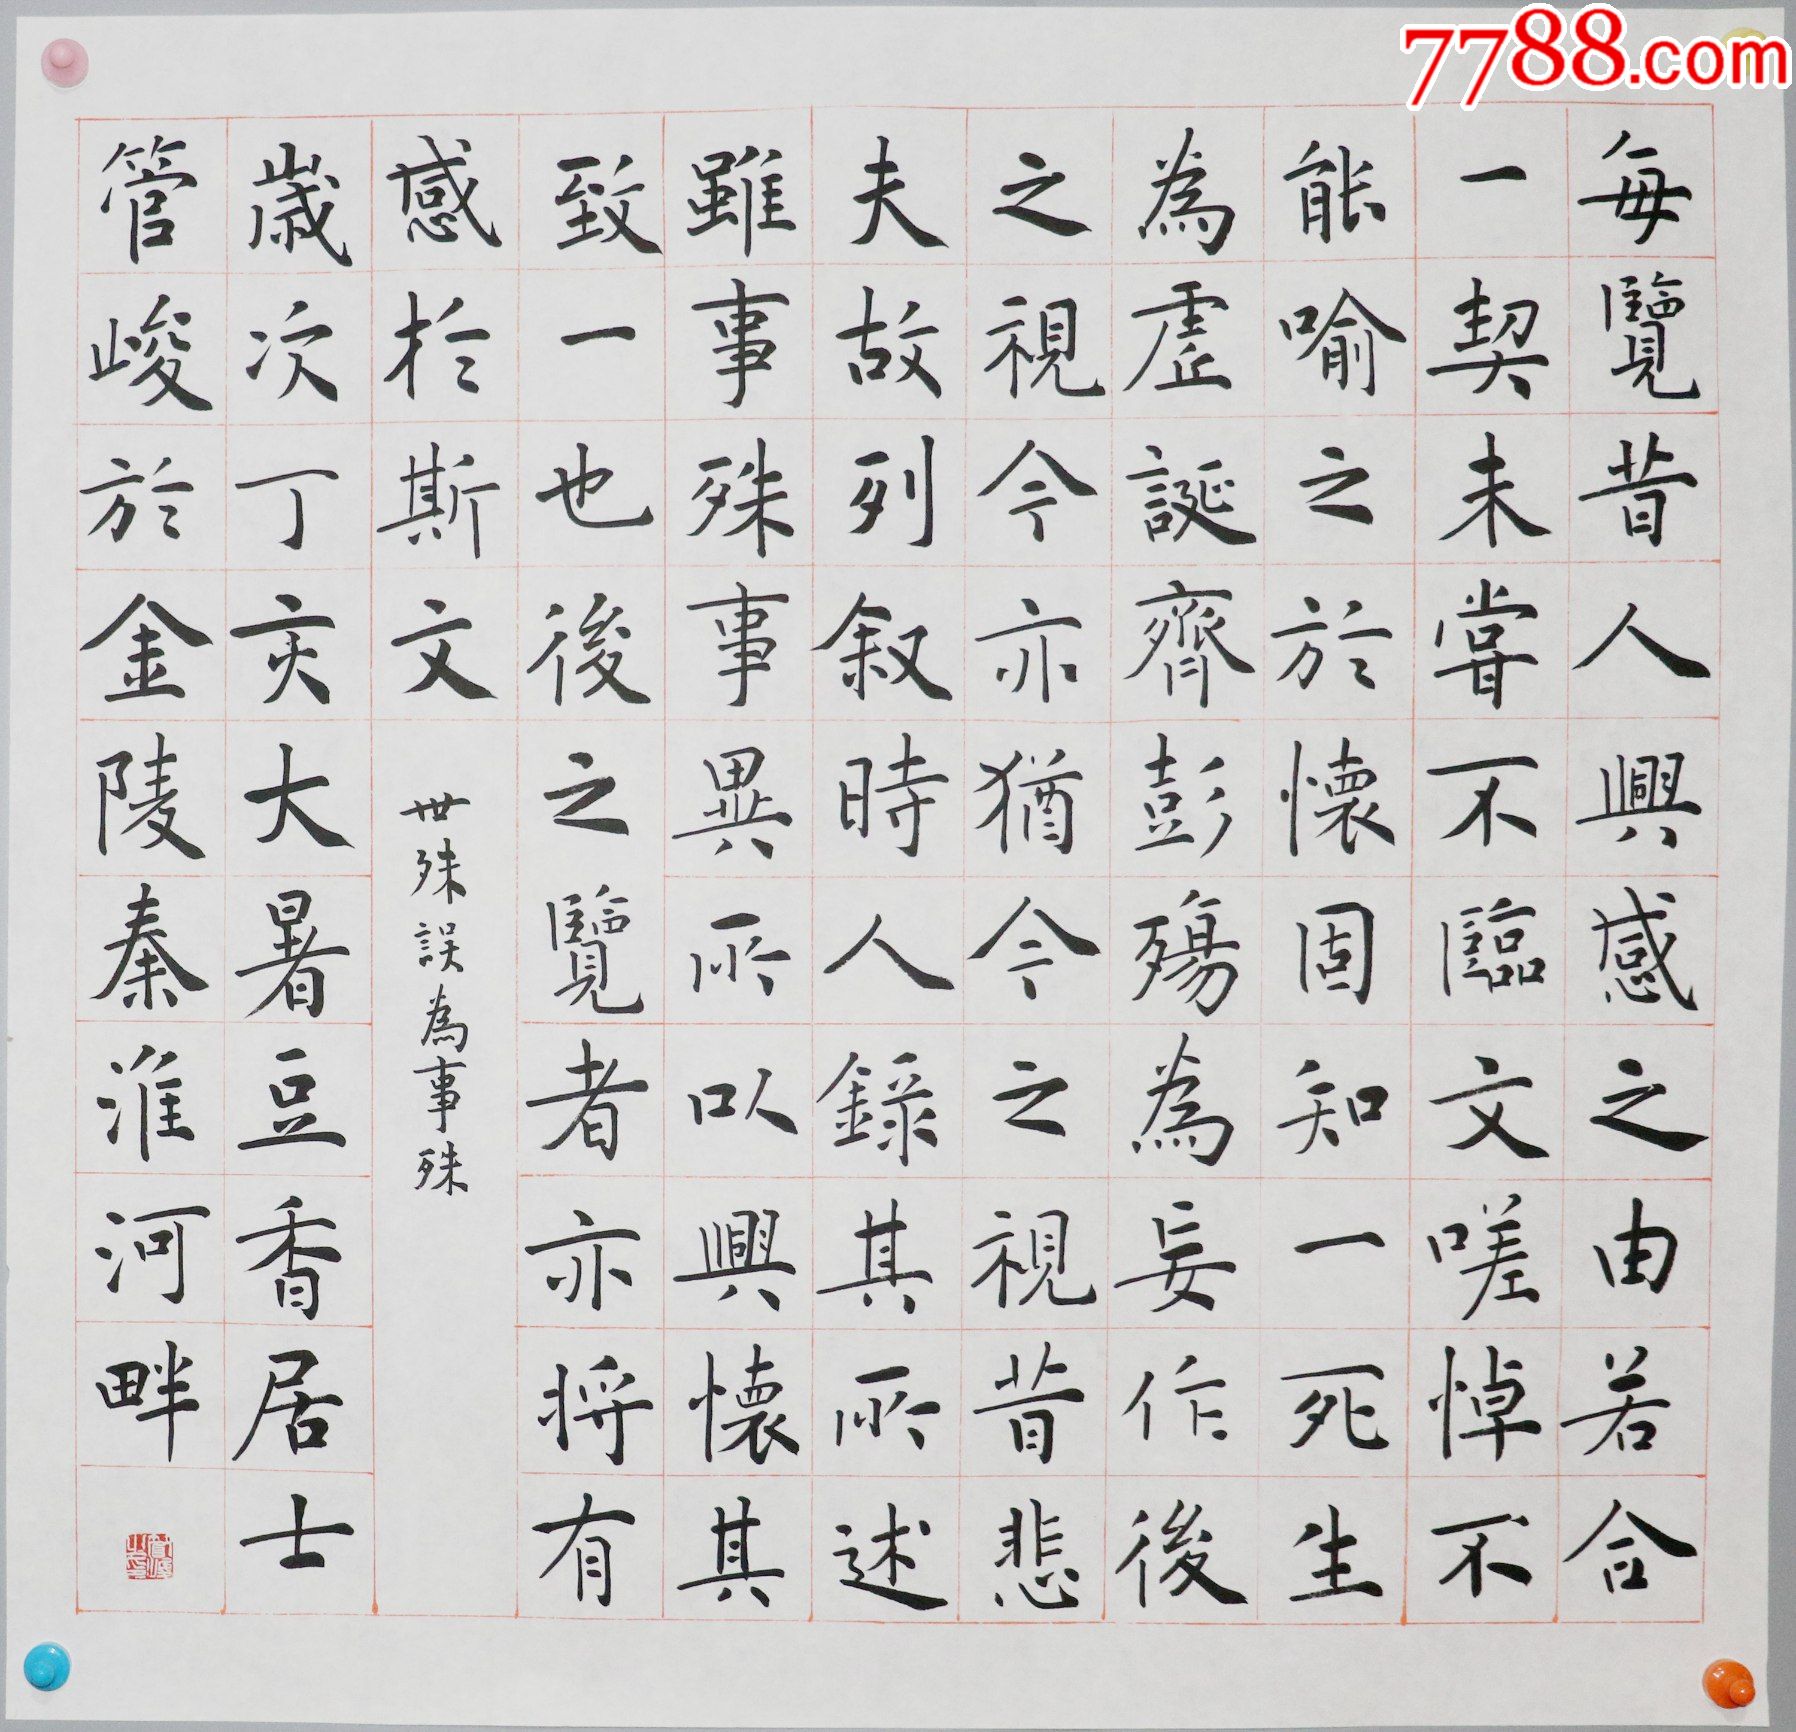 7788.com
每覽昔人興感之由若合
一契未嘗不臨文嗟悼不
能喻之於懷固知一死生
為虛誕齊彭殤為妄作後
之視今亦猶今之視昔悲
夫故列叙時人錄其所述
雖事殊事異所以興懷其
致一也後之覽者亦將有
感於斯文
世殊誤為事殊
歲次丁亥大暑豆香居士
管峻於金陵秦淮河畔